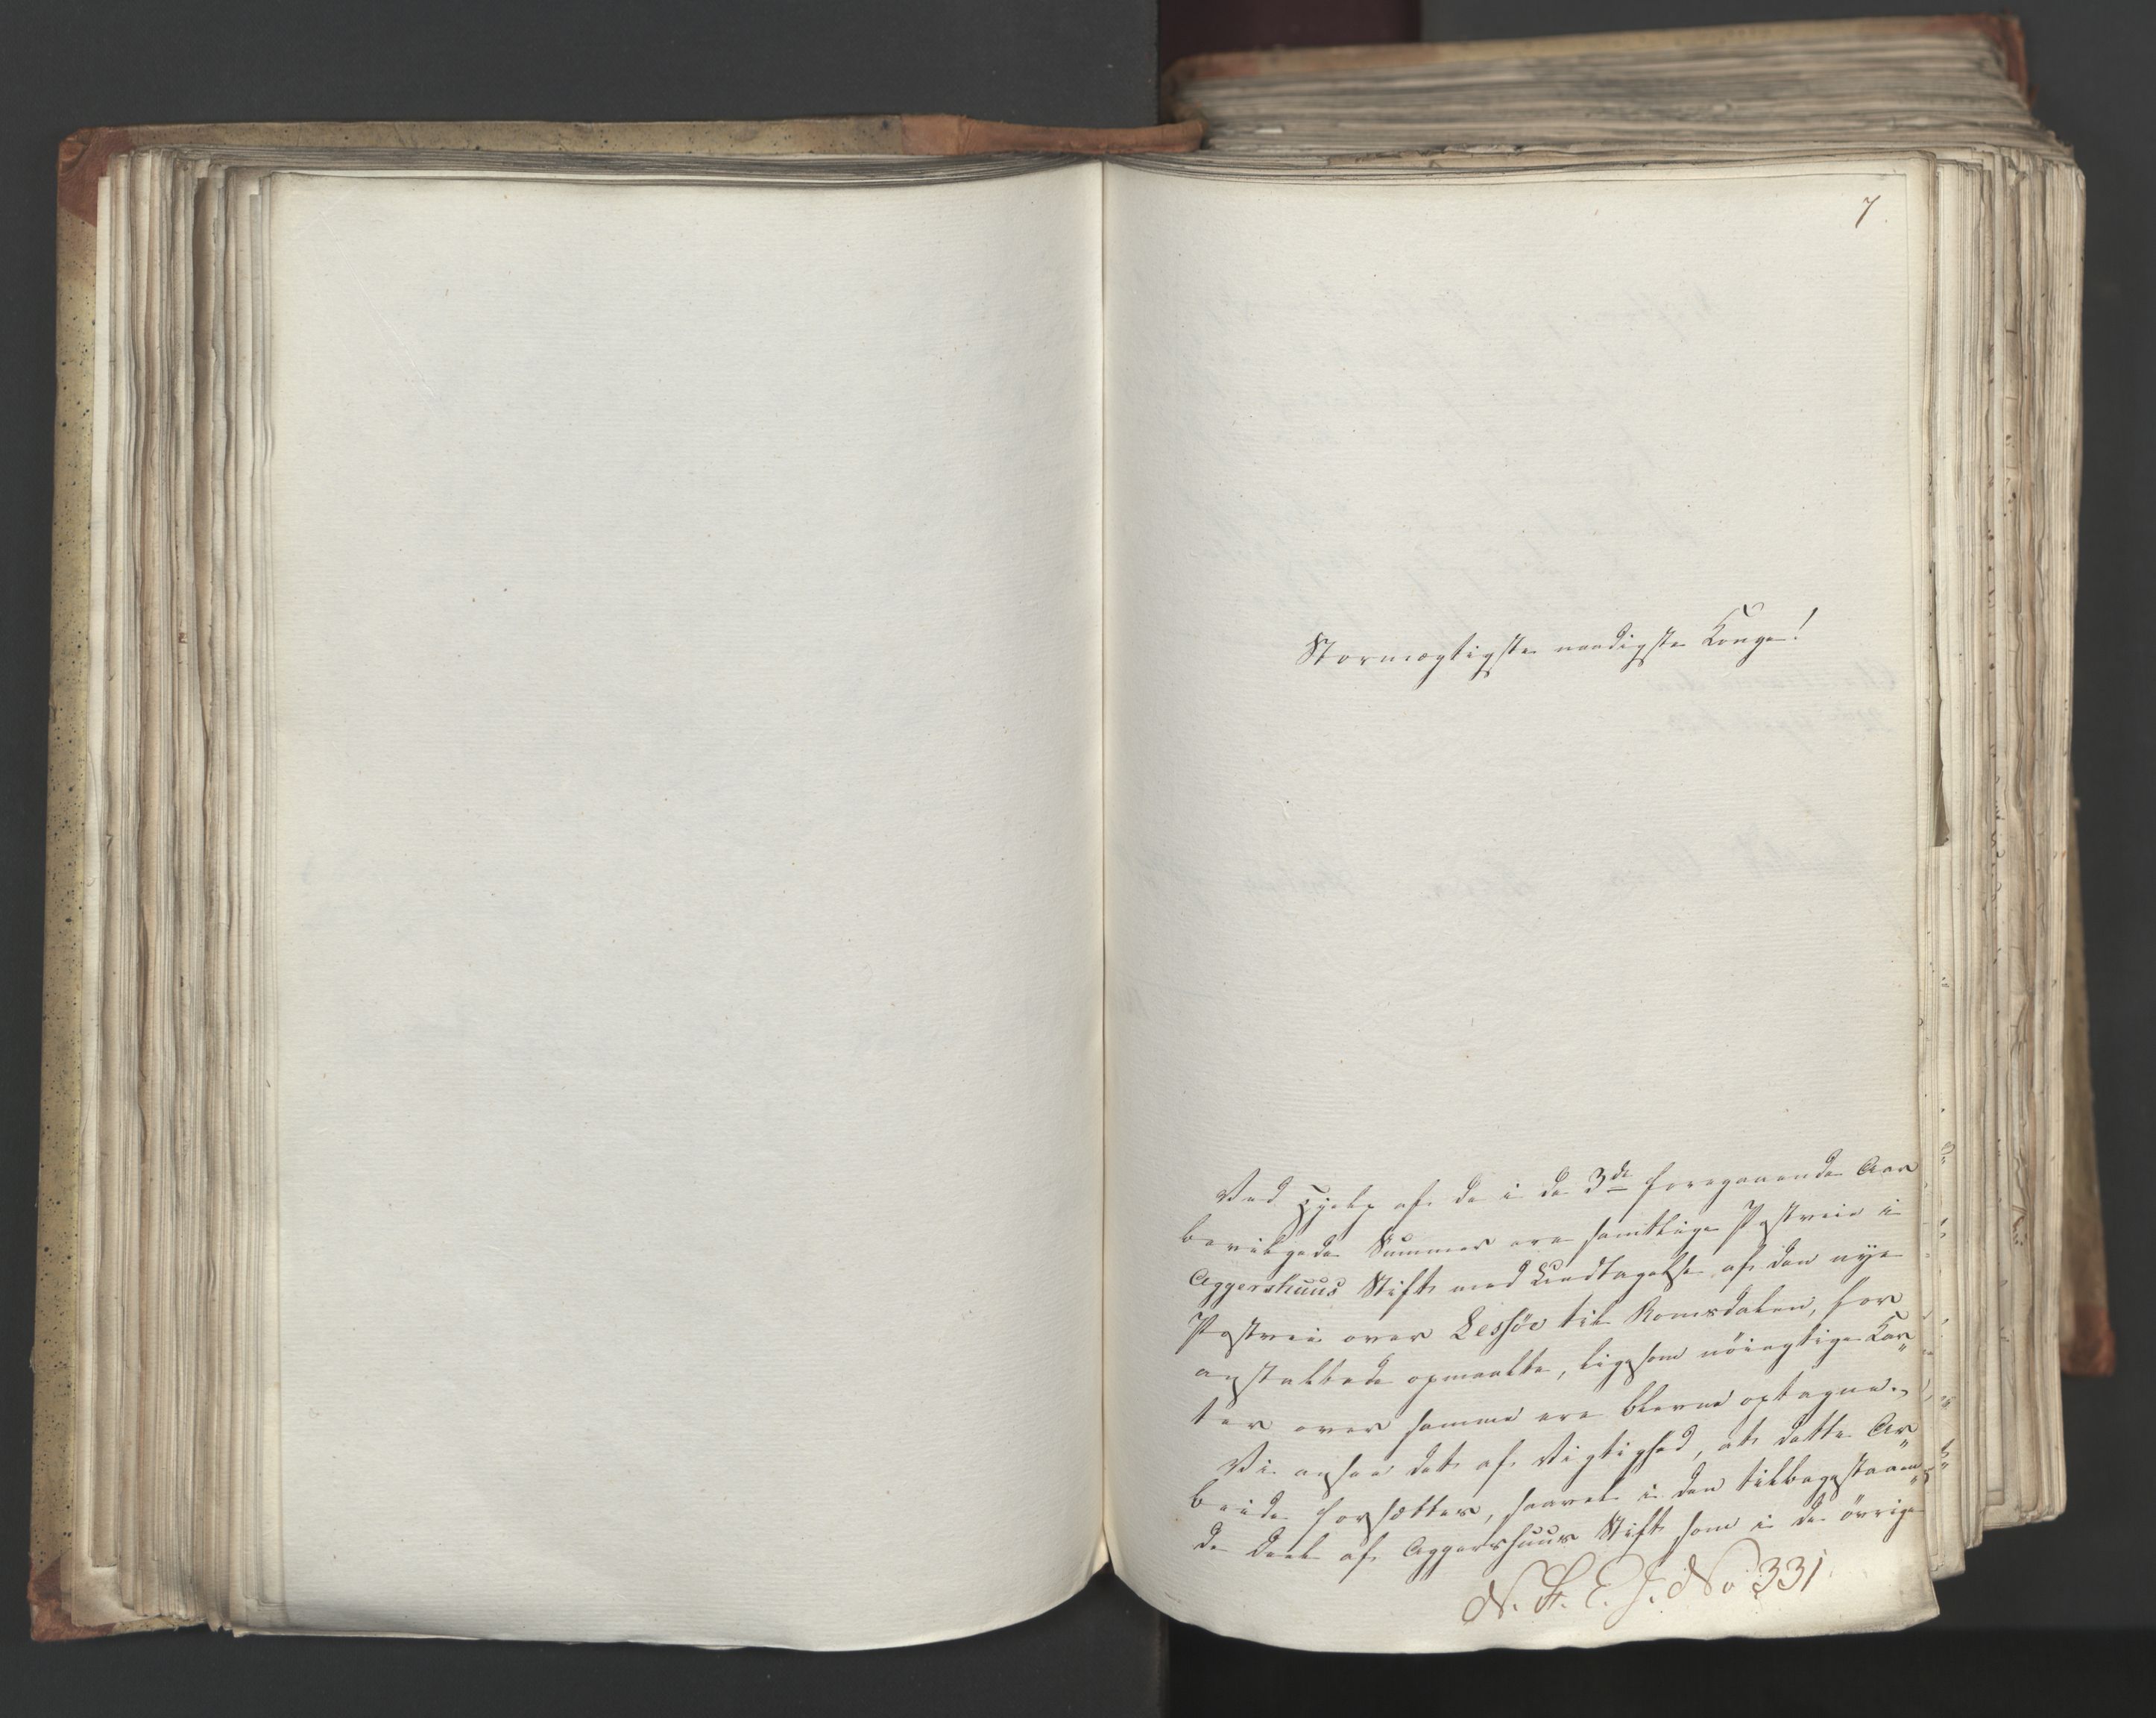 7.
Stormægtigste naadigste Konge!
Ved Hjelp af de i de 3de foregaaende Aar
bevilgede Summer ere samtlige Postveie i
Aggershuus Stift med Undtagelse af den nye
Postvei over Lessöe til Romsdalen, for
anstaltede opmaalte, ligesom nöiagtige Kar
ter over samme ere blevne optagne.
Vi ansee det af Vigtighed, at dette Ar
beide forsættes, saavel i den tilbagestaaen
de Deel af Aggershuus Stift som i de övrige
N. F. E. J. No 331